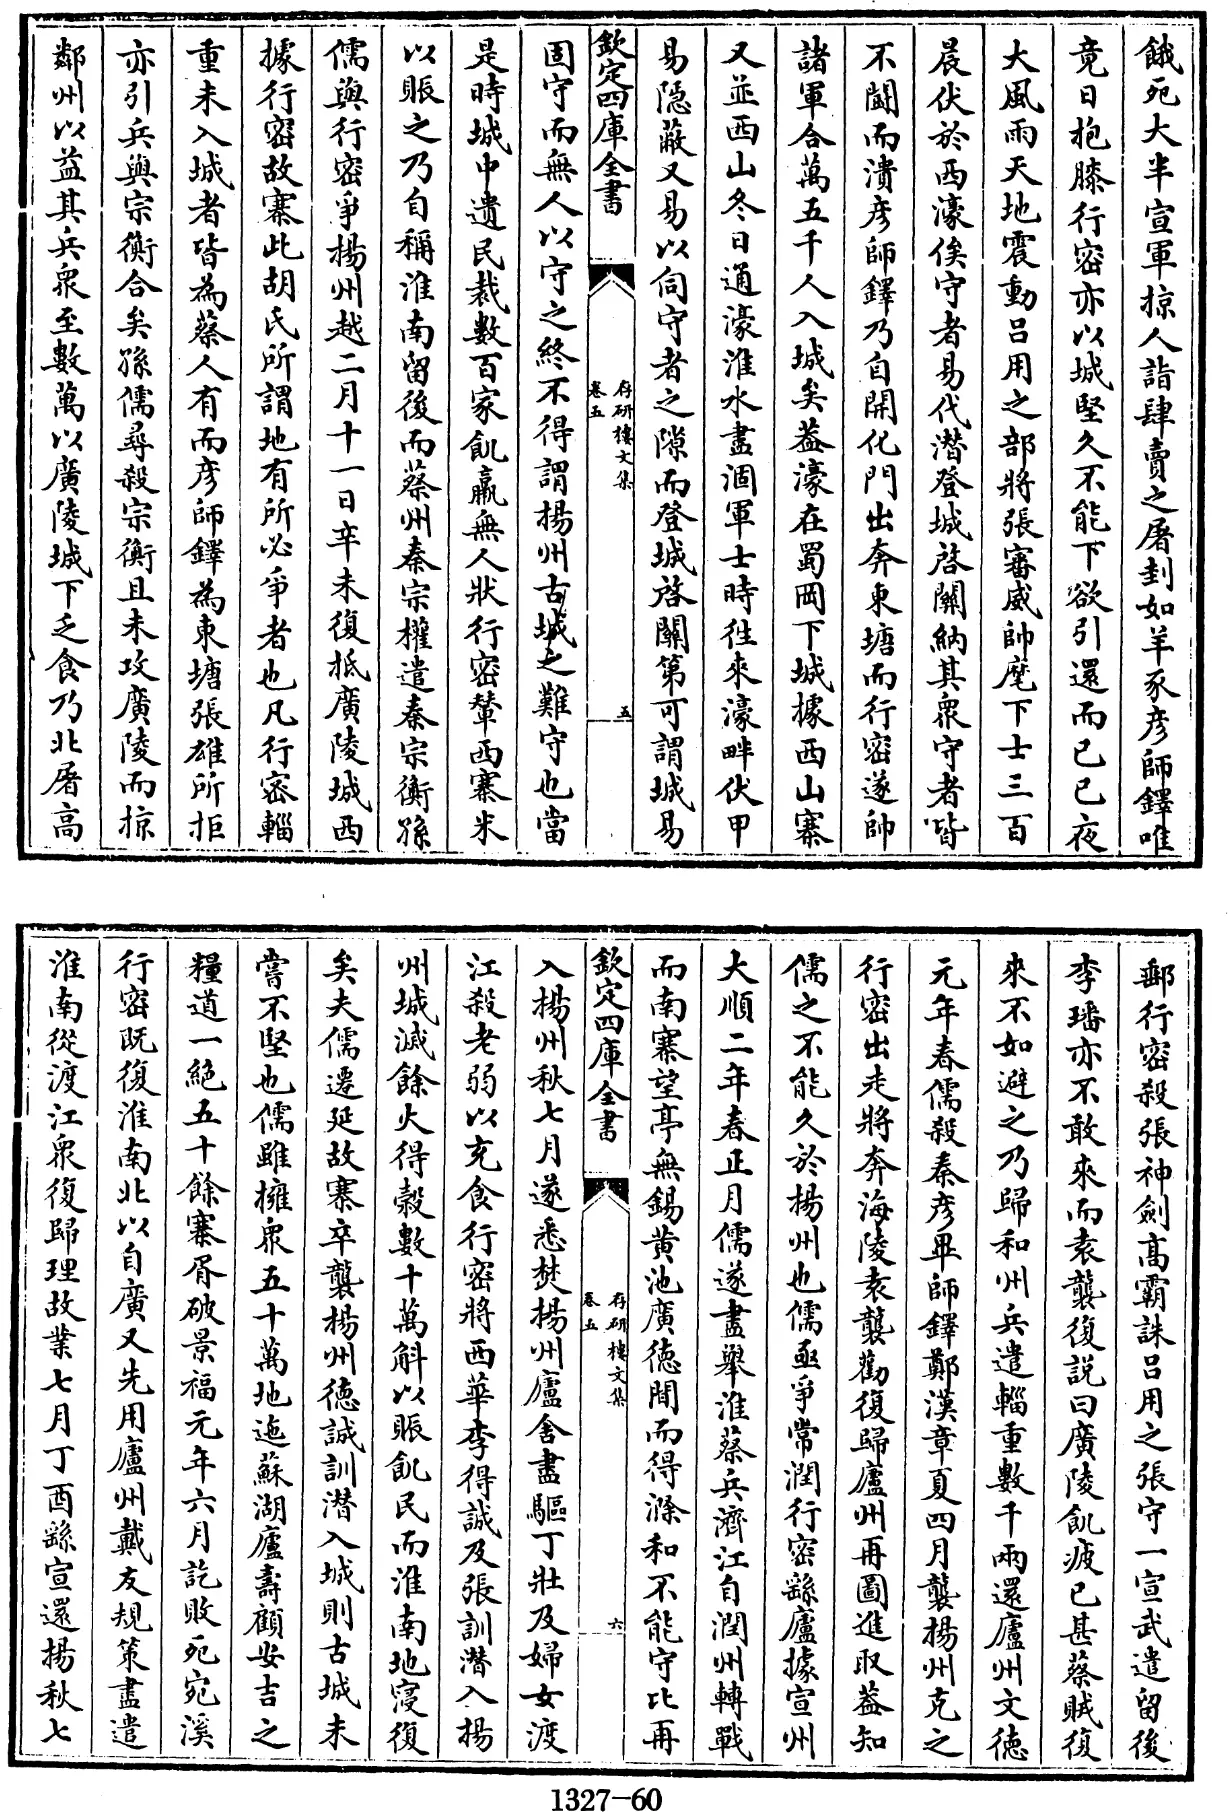 餓死大半宣軍掠人詣肆賣之屠割如羊豕彦師鐸唯
竟日抱膝行密亦以城堅久不能下欲引還而己巳夜
大風雨天地震動吕用之部將張審威帥麾下士三百
晨伏於西濠俟守者易代潛登城啓關納其衆守者皆
不鬭而潰彦師鐸乃自開化門出奔東塘而行密遂帥
諸軍合萬五千人入城矣葢濠在蜀岡下城據西山寨
又並西山冬日通濠淮水盡涸軍士時徃來濠畔伏甲
易隐蔽又易以伺守者之隙而登城啓關第可謂城易
欽定四庫全書
存研樓文集
卷五
五
固守而無人以守之終不得謂揚州古城之難守也當
是時城中遺民裁數百家飢羸無人狀行密輦西寨米
以賑之乃自稱淮南留後而蔡州秦宗權遣秦宗衡孫
儒與行密爭揚州越二月十一日辛未復抵廣陵城西
據行密故寨此胡氏所謂地有所必爭者也凡行密輜
重未入城者皆為蔡人有而彦師鐸為東塘張雄所拒
亦引兵與宗衡合矣孫儒尋殺宗衡且未攻廣陵而掠
鄰州以益其兵衆至數萬以廣陵城下乏食乃北屠高
郵行密殺張神劍高霸誅吕用之張守一宣武遣留後
李璠亦不敢來而袁襲復説曰廣陵飢疲已甚蔡賊復
來不如避之乃歸和州兵遣輜重數千兩還廬州文德
元年春儒殺秦彦畢師鐸鄭漢章夏四月襲揚州克之
行密出走將奔海陵袁襲勸復歸廬州再圖進取葢知
儒之不能久於揚州也儒亟爭常潤行密繇廬據宣州
大順二年春正月儒遂盡舉淮蔡兵濟江自潤州轉戰
而南寨望亭無錫黄池廣徳間而得滁和不能守比再
欽定四庫全書
存研樓文集
卷五
六
入揚州秋七月遂悉焚揚州廬舍盡驅丁壯及婦女渡
江殺老弱以充食行密將西華李得誠及張訓潛入揚
州城滅餘火得穀數十萬斛以賑飢民而淮南地寖復
矣夫儒遷延故寨卒襲揚州徳誠訓潛入城則古城未
嘗不堅也儒雖擁衆五十萬地迤蘇湖廬壽顧安吉之
糧道一絶五十餘寨胥破景福元年六月訖敗死宛溪
行密既復淮南北以自廣又先用廬州戴友規策盡遣
淮南從渡江衆復歸理故業七月丁酉繇宣還揚秋七
1327-60